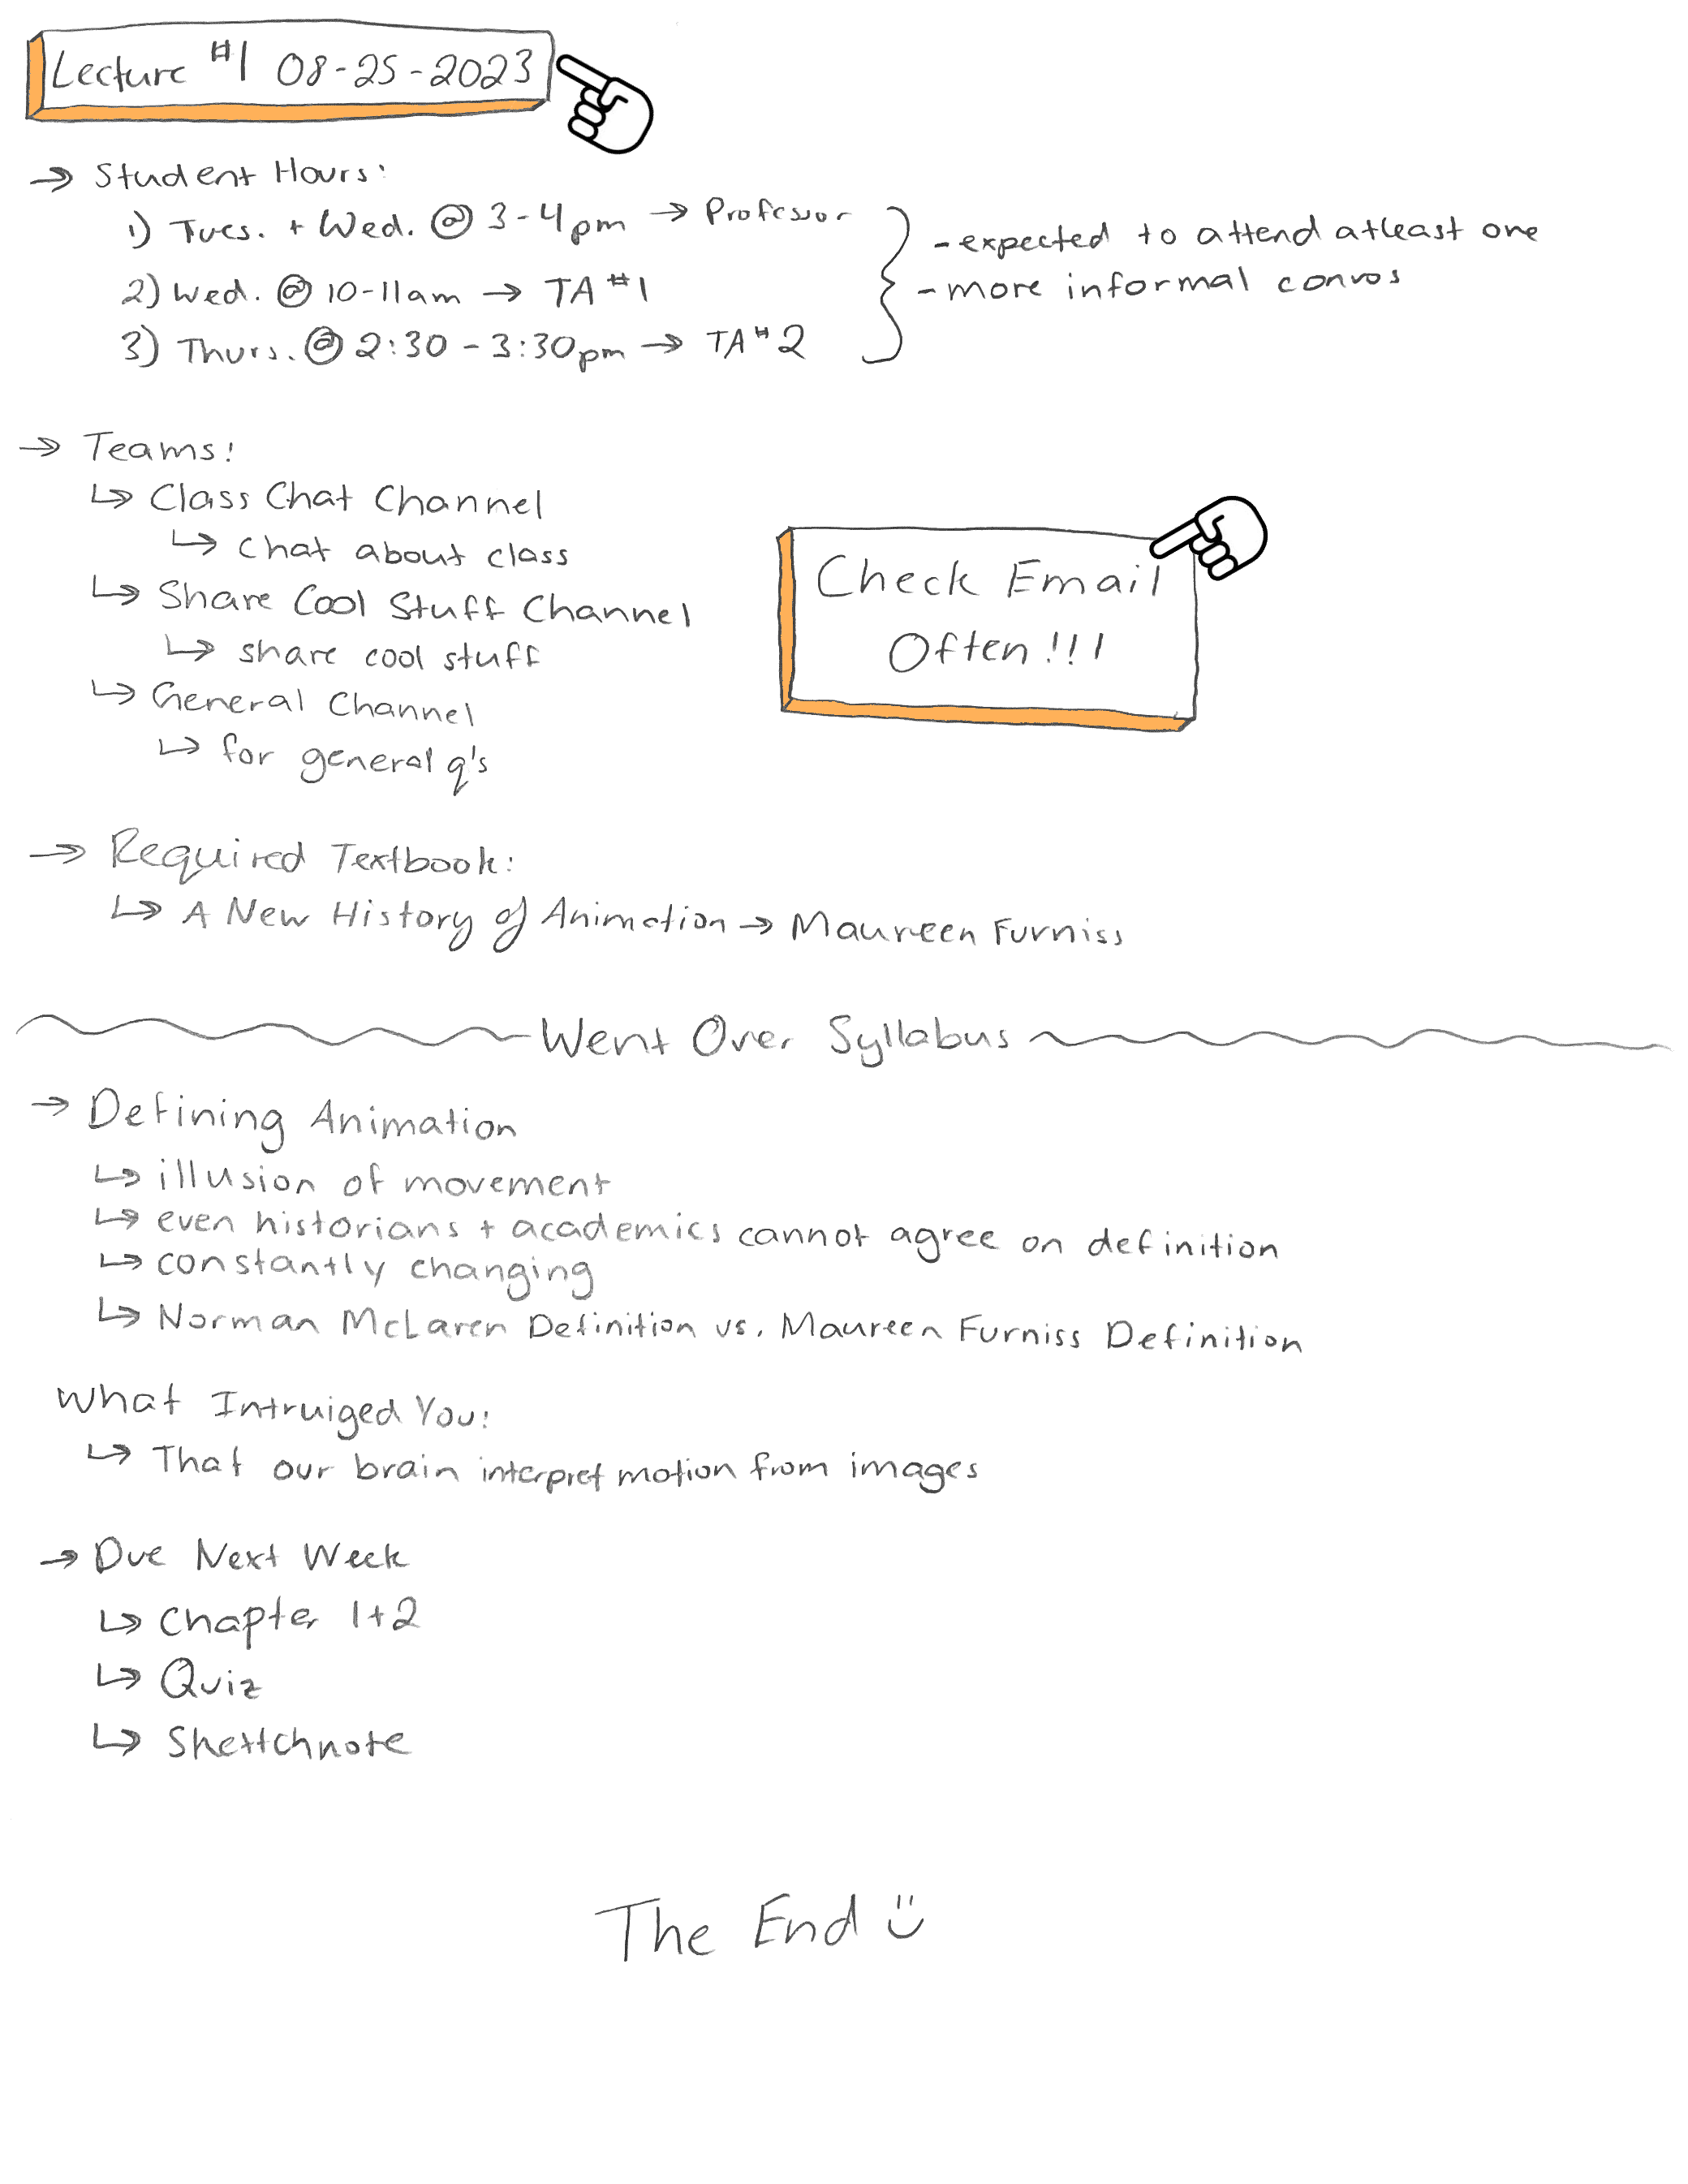 Lecture #1 08-25-2023
→ Student Hours:
1) Tues. + Wed. @ 3-4pm → Professor
2) Wed. @ 10-11am → TA #1
3) Thurs. @ 2:30 - 3:30pm → TA #2
- expected to attend atleast one
- more informal convos
→ Teams:
↳ Class Chat Channel
↳ chat about class
↳ Share Cool Stuff Channel
↳ share cool stuff
↳ General Channel
↳ for general q's
Check Email
Often!!!
→ Required Textbook:
↳ A New History of Animation → Maureen Furniss
Went Over Syllabus
→ Defining Animation
↳ illusion of movement
↳ even historians + academics cannot agree on definition
↳ constantly changing
↳ Norman McLaren Definition vs. Maureen Furniss Definition
What Intruiged You:
↳ That our brain interpret motion from images
→ Due Next Week
↳ Chapter 1+2
↳ Quiz
↳ Skettchnote
The End